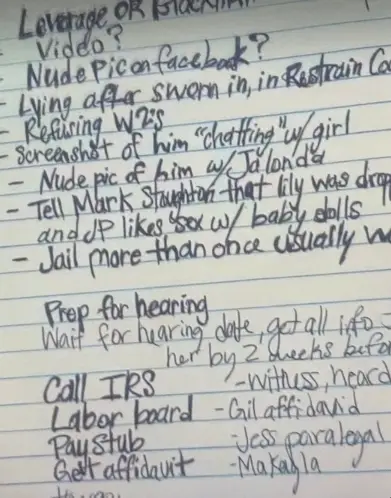 Leverage OR Blackmail
- Video?
- Nude Pic on facebook?
- Lying after sworn in, in Restrain
- Refusing W2's
- Screenshot of him "chatting" w/ girl
- Nude pic of him w/ Ja'londa
- Tell Mark Stoughton that lily was drop
and JP likes "sex w/ baby dolls
- Jail more than once usually w
Prep for hearing
Wait for hearing date, get all info
her by 2 weeks befo
Call IRS - witness, heard
Labor board - Gil affidavid
Pay stub - Jess paralegal
Gett affidavit - Makayla